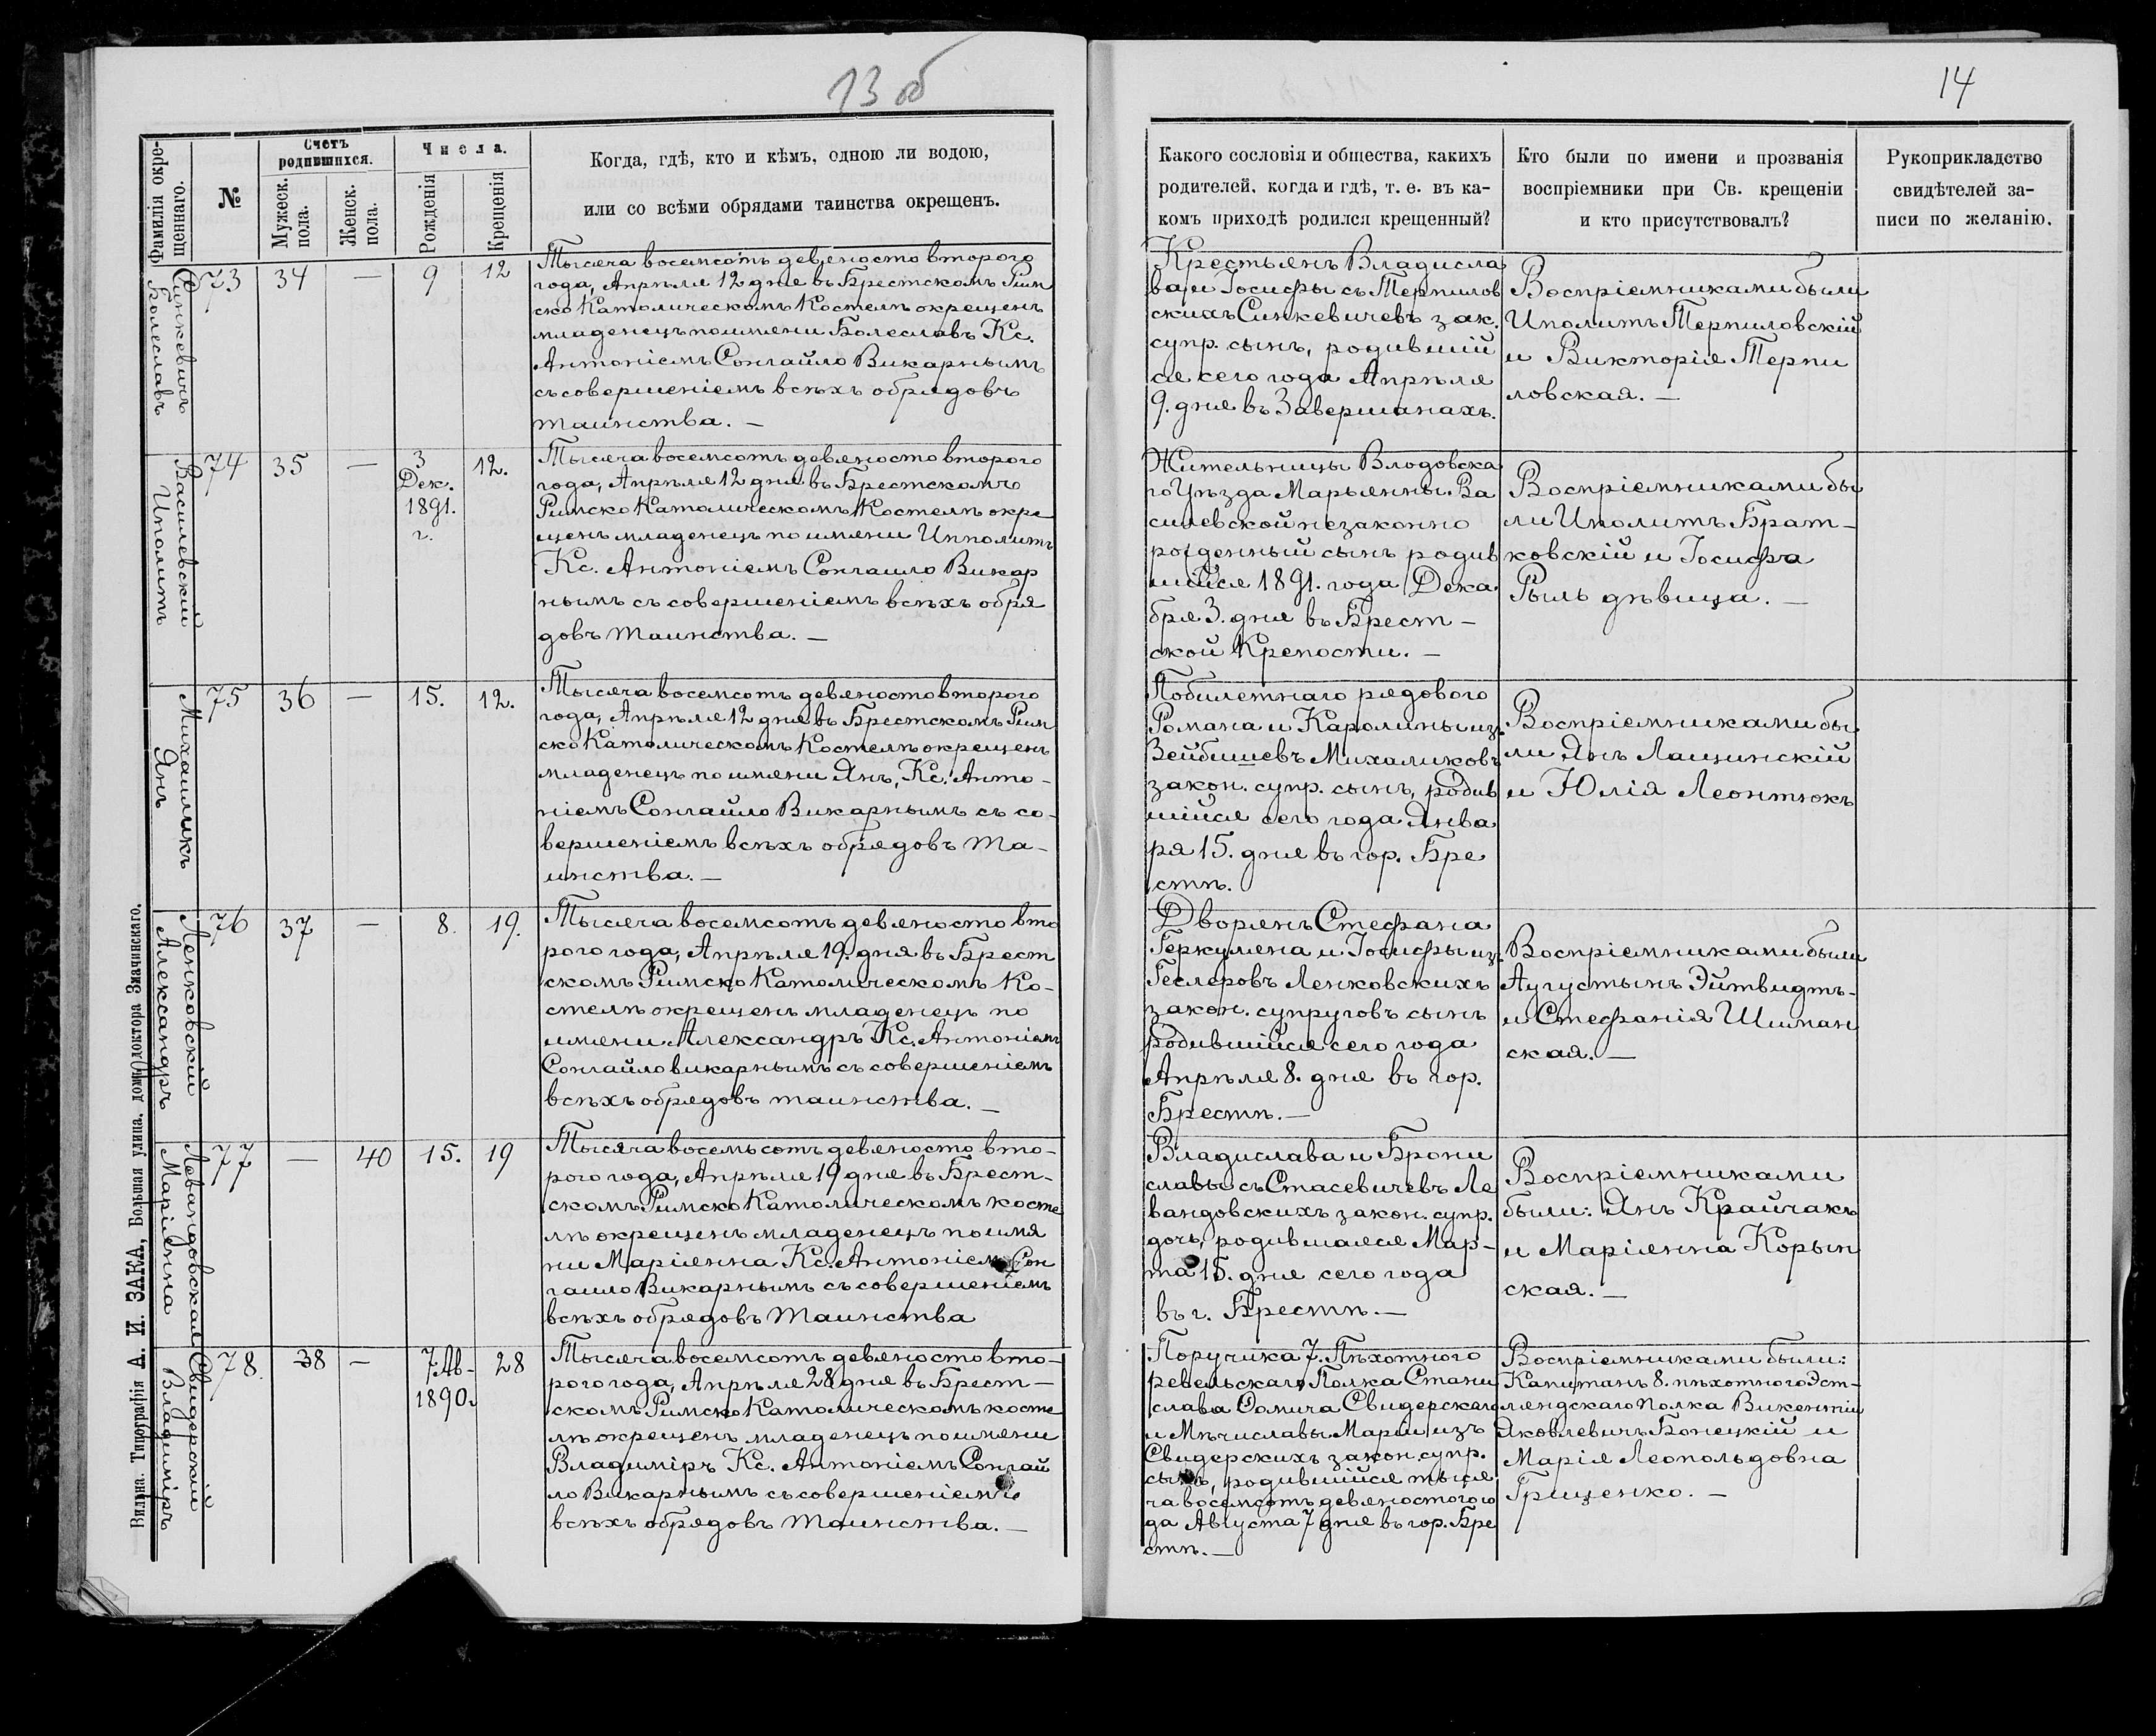 13 об
14
Фамилія окре-
щеннаго.
№
Счетъ
родившихся.
Мужеск.
пола.
Женск.
пола.
Числа.
Рожденія
Крещенія
Когда, гдѣ, кто и кѣмъ, одною ли водою,
или со всѣми обрядами таинства окрещенъ.
Какого сословія и общества, какихъ
родителей, когда и гдѣ, т. е. въ ка-
комъ приходѣ родился крещенный?
Кто были по имени и прозванія
воспріемники при Св. крещеніи
и кто присутствовалъ?
Рукоприкладство
свидѣтелей за-
писи по желанію.
Синкевичъ
Болеславъ
73 34 — 9 12
Тысяча восемсотъ девяносто второго
года, Апрѣля 12 дня въ Брестскомъ Рим
ско Католическомъ Костелѣ окрещенъ
младенецъ по имени Болеславъ Кс.
Антоніемъ Сонгайло Викарнымъ
съ совершеніемъ всѣхъ обрядовъ
таинства. —
Крестьянъ Владисла
ва и Іосифы съ Терпилов
скихъ Синкевичевъ зак.
супр. сынъ, родившій
ся сего года Апрѣля
9. дня въ Завершанахъ.
Воспріемниками были
Иполитъ Терпиловскій
и Викторія Терпи
ловская. —
Василевскій
Иполитъ
74 35 — 3 12.
Дек.
1891.
г.
Тысяча восемсотъ девяносто второго
года, Апрѣля 12 дня въ Брестскомъ
Римско Католическомъ Костелѣ окре
щенъ младенецъ по имени Ипполитъ
Кс. Антоніемъ Сонгаило Викар
нымъ съ совершеніемъ всѣхъ обря
довъ таинства. —
Жительницы Влодовска
го Уѣзда Марьянны Ва
силевской незаконно
рожденный сынъ родив
шійся 1891. года Дека
бря 3. дня въ Брест —
ской Крепости. —
Воспріемниками бы
ли Иполитъ Брат —
ковскій и Іосифа
Рыль дѣвица. —
Михаликъ
Янъ
75 36 — 15. 12.
Тысяча восемсотъ девяносто второго
года, Апрѣля 12 дня въ Брестскомъ Рим
ско Католическомъ Костелѣ окрещенъ
младенецъ по имени Янъ, Кс. Анто-
ніемъ Сонгайло Викарнымъ съ со-
вершеніемъ всѣхъ обрядовъ та-
инства. —
Побилетнаго рядового
Романа и Каролины из.
Зейбишевъ Михаликовъ
закон. супр. сынъ, родив
шійся сего года Янва
ря 15. дня въ гор. Бре
стѣ.
Воспріемниками бы
ли Янъ Лащинскій
и Юлія Леонтюкъ
Ленковскій
Александръ
76 37 — 8. 19.
Тысяча восемсотъ девяносто вто
рого года, Апрѣля 19. дня въ Брест
скомъ Римско Католическомъ Ко-
стелѣ окрещенъ младенецъ по
имени Александръ Кс. Антоніемъ
Сонгайло викарнымъ съ совершеніемъ
всѣхъ обрядовъ таинства. —
Дворянъ Стефана
Геркулена и Іосифы из.
Геслеровъ Ленковскихъ
закон. супруговъ сынъ
родившійся сего года
Апрѣля 8. дня въ гор.
Брестѣ. —
Воспріемниками были
Аугустынъ Эйтвидтъ-
и Стефанія Шиман
ская. —
Левандовская
Маріянна
77 — 40 15. 19
Тысяча восемьсотъ девяносто вто-
рого года, Апрѣля 19 дня въ Брест-
скомъ Римско Католическомъ косте
лѣ окрещенъ младенецъ по имя
ни Маріянна Кс. Антоніемъ Сон
гаило Викарнымъ съ совершеніемъ
всѣхъ обрядовъ Таинства
Владислава и Брони
славы съ Стасевичевъ Ле
вандовскихъ закон. супр.
дочь, родившаяся Мар-
та 15. дня сего года
въ г. Брестѣ. —
Воспріемниками
были: Янъ Крайчакъ
и Маріянна Корын
ская. —
Свидерскій
Владиміръ
78. 38 — 7 Ав- 28
1890.
Тысяча восемсотъ девяносто вто-
рого года, Апрѣля 28 дня въ Брест —
скомъ Римско Католическомъ косте
лѣ окрещенъ младенецъ по имени
Владиміръ Кс. Антоніемъ Сонгай
ло Викарнымъ съ совершеніемъ
всѣхъ обрядовъ Таинства. —
Поручика 7. Пѣхотного
ревельскаго Полка Стани
слава Фомича Свидерскаго
и Мѣчиславы Маріи изъ
Свидерскихъ закон. супр.
сынъ, родившійся тыся
ча восемсотъ девяностого го
да Августа 7 дня въ гор. Бре
стѣ. —
Воспріемниками были:
Капитанъ 8. пѣхотного Эст-
ляндскаго Полка Викентій
Яковлевичъ Бонецкій и
Марія Леопольдовна
Грищенко. —
Вильна. Типографія А. И. ЗАКА, Большая улица, домъ доктора Змачинскаго.